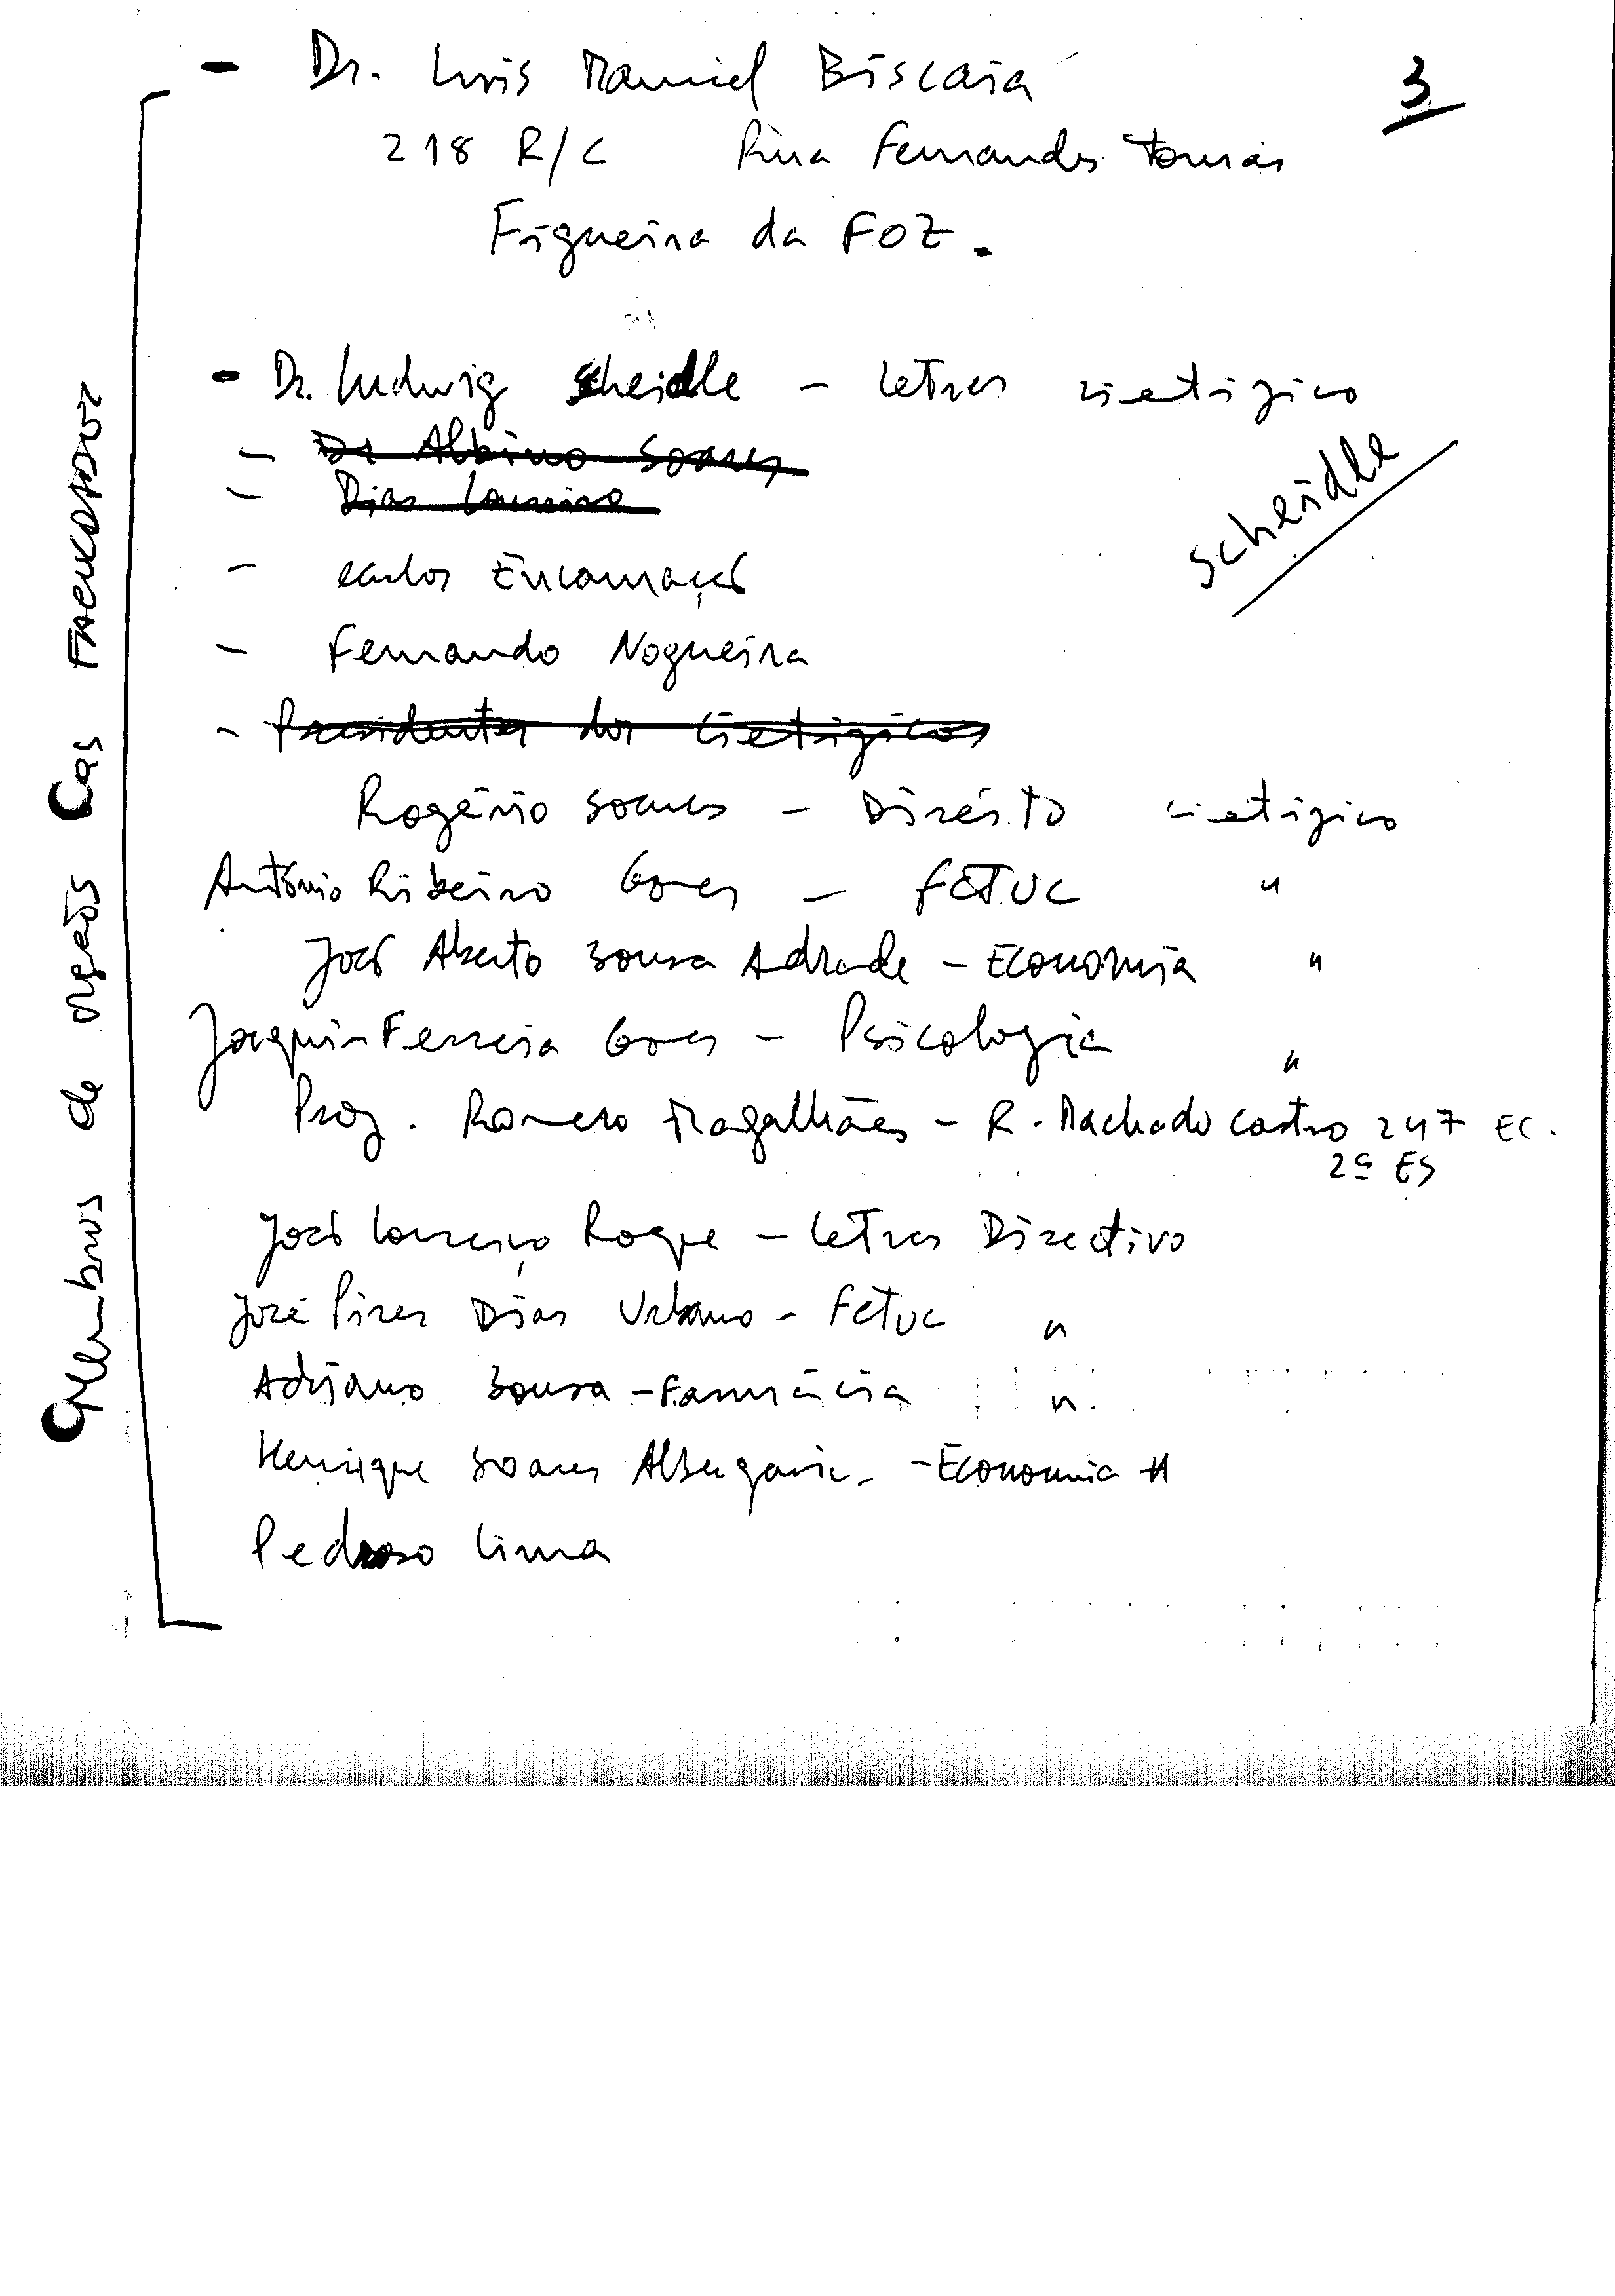 3
- Dr. Luis Manuel Biscaia
218 R/C Rua Fernandes Tomás
Figueira da FOZ.
- Dr. Ludwig Scheidle - Letras cientifico
Scheidle
- Dr Albino Soares
- Dias Loureiro
- Carlos Encarnação
- Fernando Nogueira
- Presidentes dos Cientificos
Rogério Soares - Direito cientifico
António Ribeiro Gomes - FCTUC "
José Alberto Sousa Andrade - Economia "
Joaquim Ferreira Gomes - Psicologia "
Prof. Romero Magalhães - R. Machado Castro 247 EC.
2º ES
José Loureiro Roque - Letras Directivo
José Pires Dias Urbano - FCTUC "
Adriano Sousa - Farmácia "
Henrique Soares Albergaria - Economia "
Pedroso Lima
Membros de orgãos das FACULDADES